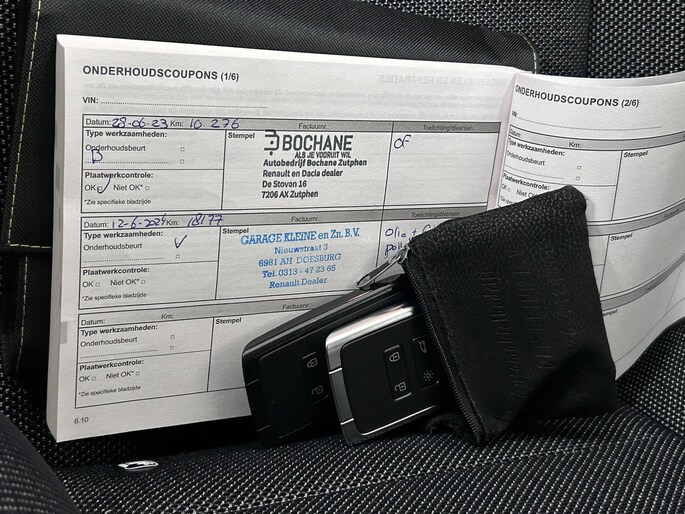 ONDERHOUDSCOUPONS (1/6)
VIN:
Datum: 28-06-23 Km: 10.276 Factuurnr.: Toelichting/diversen
Type werkzaamheden:
Onderhoudsbeurt
B
Plaatwerkcontrole:
OK Niet OK*
*Zie specifieke bladzijde
Stempel
BOCHANE
ALS JE VOORUIT WIL
Autobedrijf Bochane Zutphen
Renault en Dacia dealer
De Stoven 16
7206 AX Zutphen
OF
Datum: 12-6-2024 Km: 18177 Factuurnr.: Toelichting/diversen
Type werkzaamheden:
Onderhoudsbeurt
Plaatwerkcontrole:
OK Niet OK*
*Zie specifieke bladzijde
Stempel
GARAGE KLEINE en Zn. B.V.
Nieuwstraat 3
6981 AH DOESBURG
Tel. 0313 - 47 23 65
Renault Dealer
Olie +
Datum: Km: Factuurnr.:
Type werkzaamheden:
Onderhoudsbeurt
Plaatwerkcontrole:
OK Niet OK*
*Zie specifieke bladzijde
Stempel
6.10
ONDERHOUDSCOUPONS (2/6)
Datum: Km:
Type werkzaamheden:
Onderhoudsbeurt
Plaatwerkcontrole:
OK Niet OK*
Stempel
Stempel